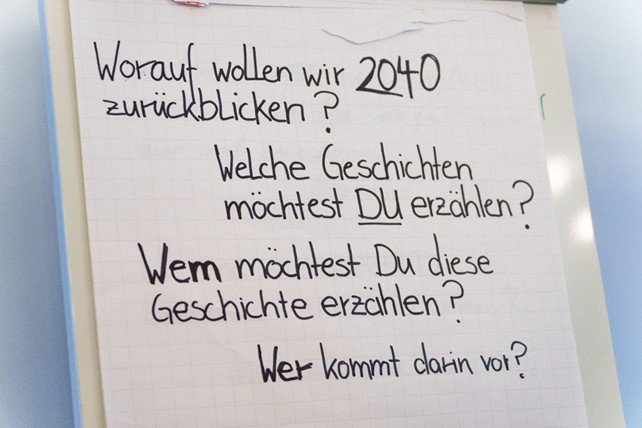 Worauf wollen wir 2040
zurückblicken?
Welche Geschichten
möchtest DU erzählen?
Wem möchtest Du diese
Geschichte erzählen?
Wer kommt darin vor?